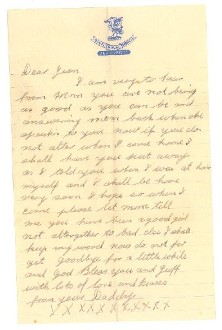 Dear Jean,
I am very to hear
from Mom you are not being
as good as you can be and
answering mom back when she
speaks to you now if you do
not alter when I come home I
shall have your seat away
as I told you when I were at home
myself and I shall be home
very soon I hope so when I
come please let mom tell
me you have been a good girl
not altogether to bad else I shall
keep my word now do not for
get Goodbye for a little while
and God Bless you and Jeff
with lots of love and kisses
from your Daddy
X X X X X X X X X X